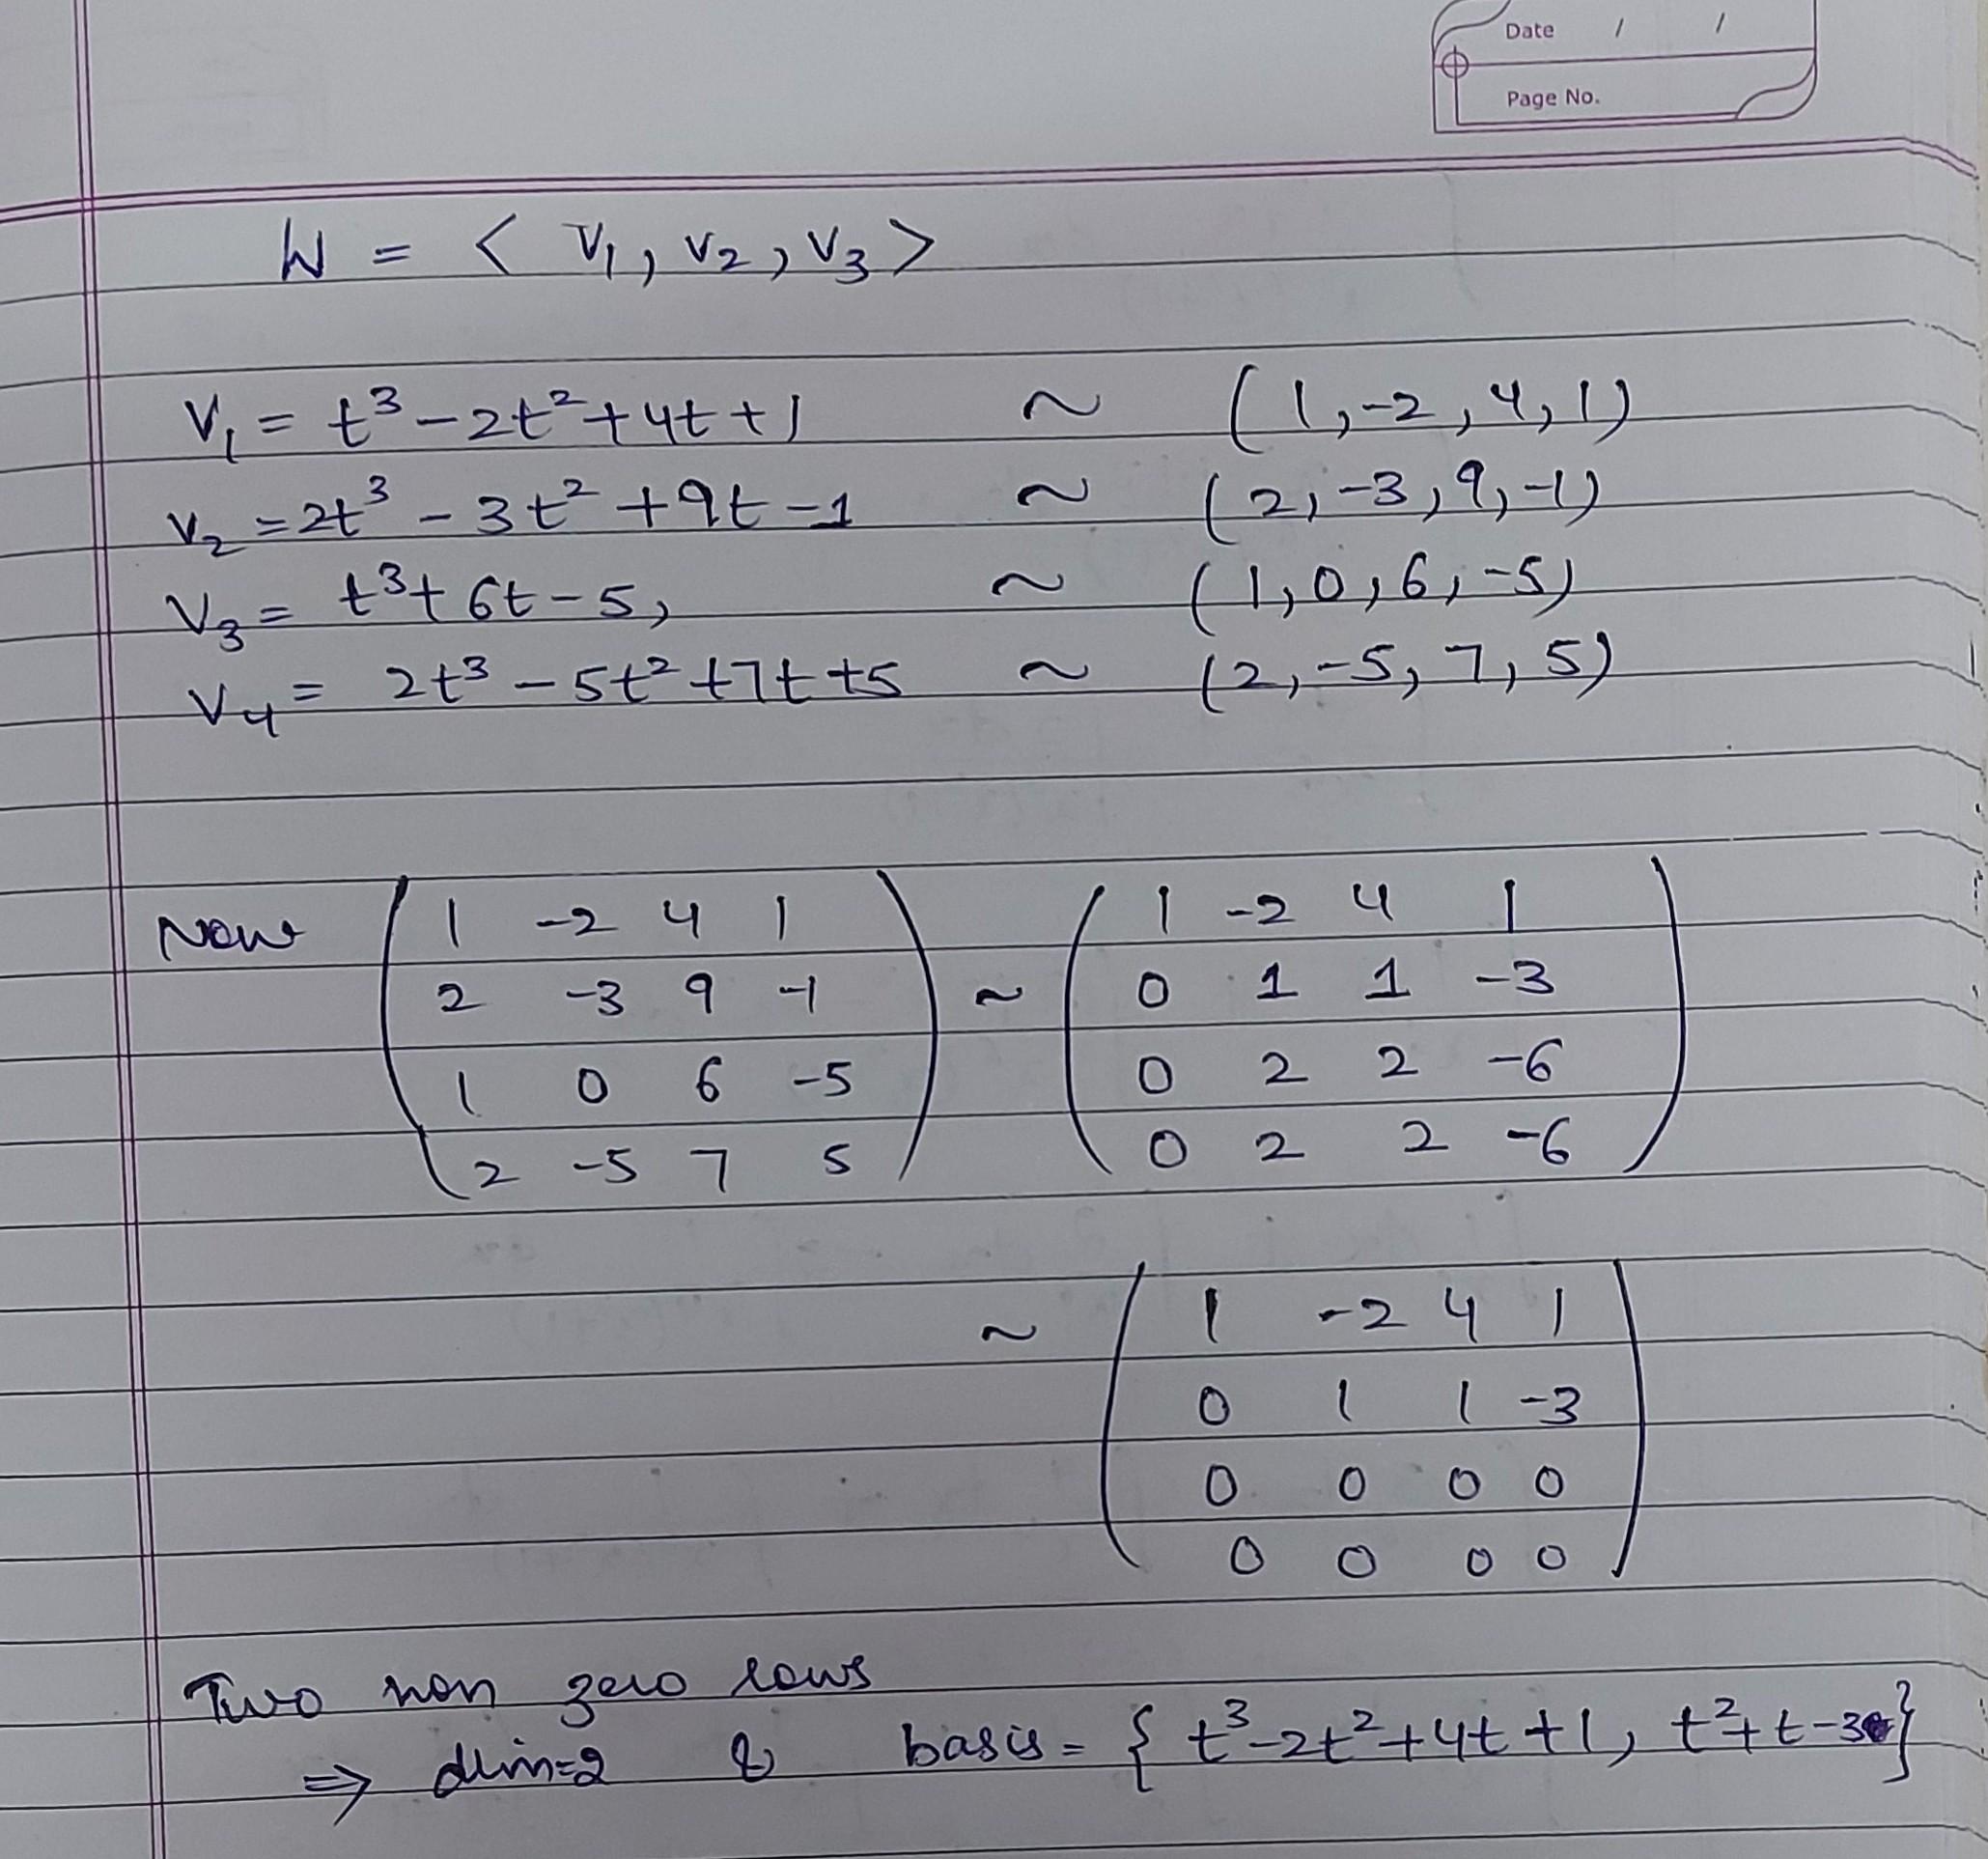 Date / /
Page No.
W = < V₁, V₂, V₃ >
V₁ = t³ - 2t² + 4t + 1 ~ (1, -2, 4, 1)
V₂ = 2t³ - 3t² + 9t - 1 ~ (2, -3, 9, -1)
V₃ = t³ + 6t - 5, ~ (1, 0, 6, -5)
V₄ = 2t³ - 5t² + 7t + 5 ~ (2, -5, 7, 5)
Now ( 1 -2 4 1 ) ( 1 -2 4 1 )
2 -3 9 -1 ~ 0 1 1 -3
1 0 6 -5 0 2 2 -6
2 -5 7 5 0 2 2 -6
~ ( 1 -2 4 1 )
0 1 1 -3
0 0 0 0
0 0 0 0
Two non zero rows
⇒ dim=2 & basis = { t³ - 2t² + 4t + 1, t² + t - 3 }